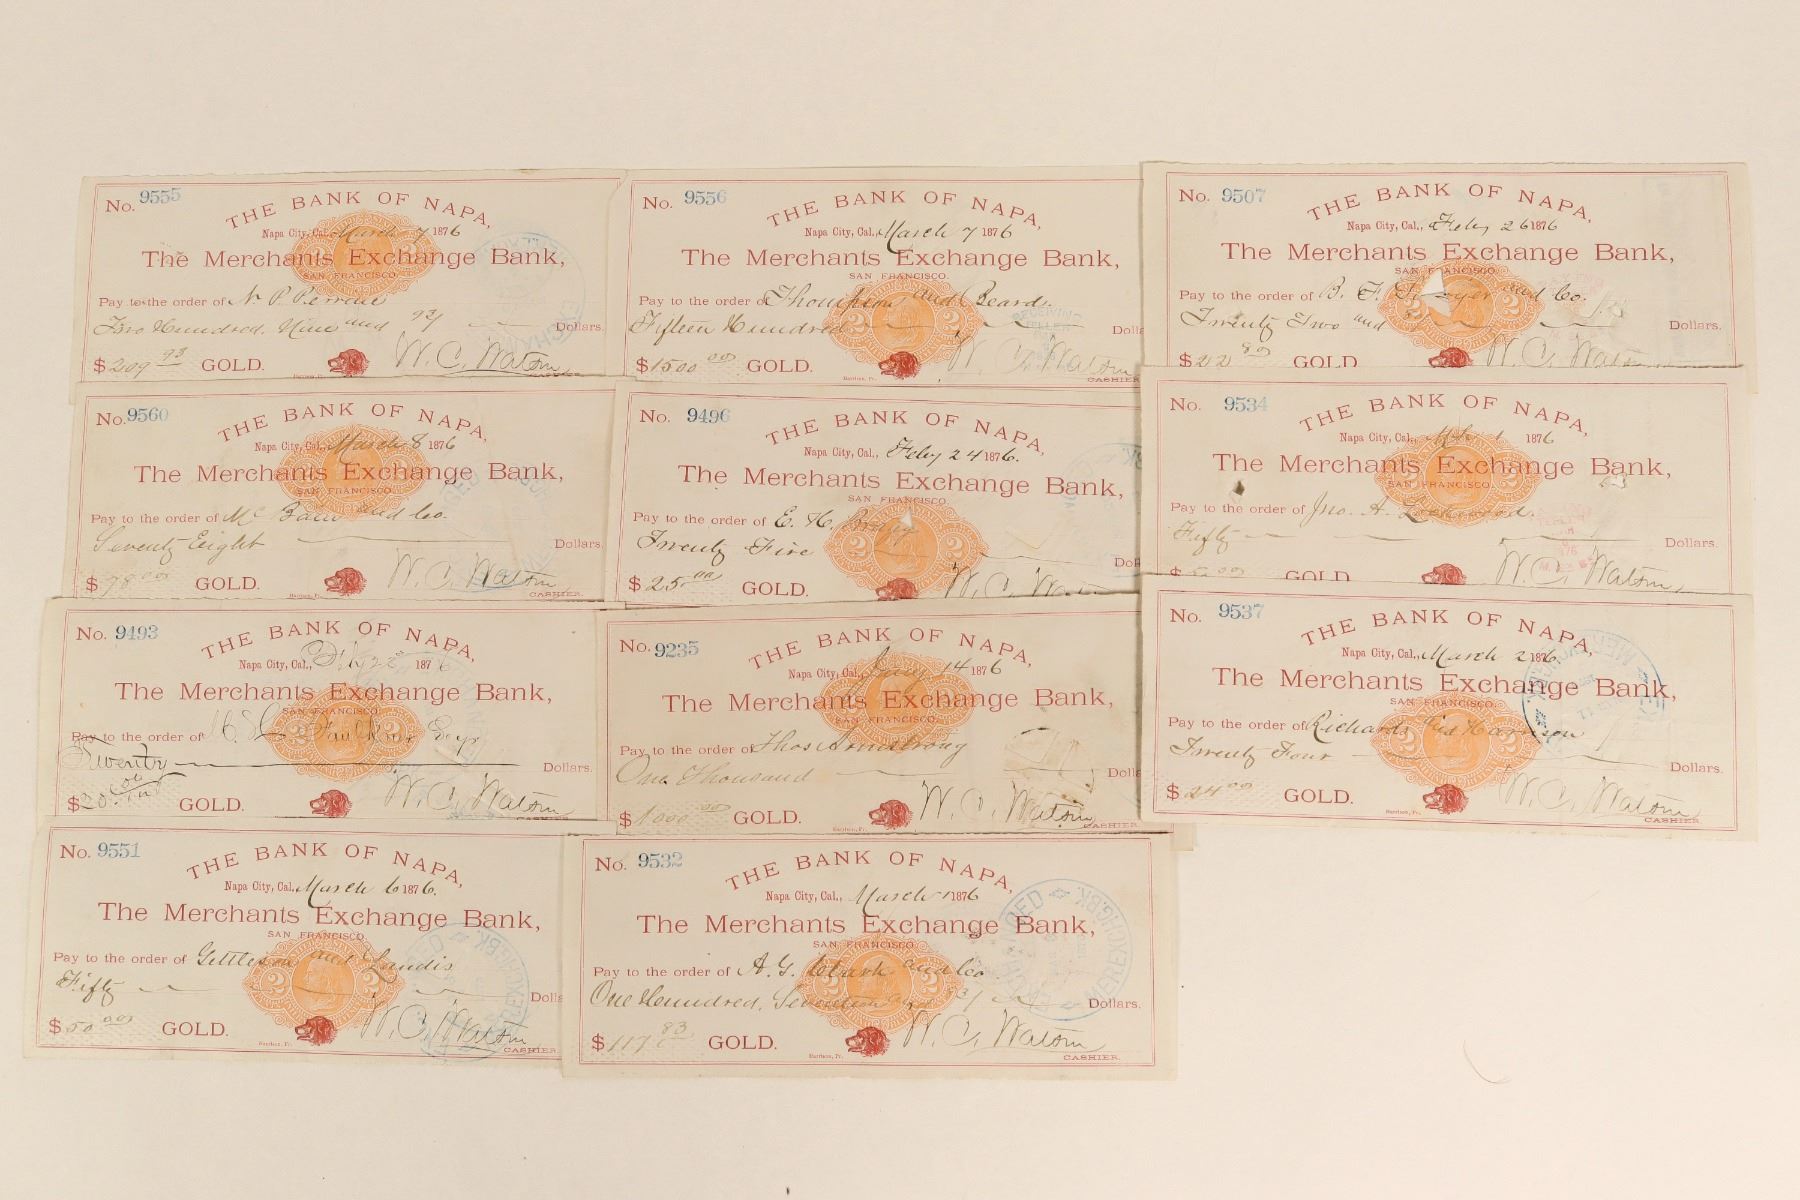 No. 9555
THE BANK OF NAPA,
Napa City, Cal., March 7 1876
The Merchants Exchange Bank,
SAN FRANCISCO.
Pay to the order of N. P.
Two Hundred, Nine and 93/
Dollars.
$ 209 93 GOLD. W. C. Watson
No. 9556
THE BANK OF NAPA,
Napa City, Cal., March 7 1876
The Merchants Exchange Bank,
SAN FRANCISCO.
Pay to the order of Thompson and Beard.
Fifteen Hundred
$ 1500 00 GOLD. W. C. Watson
CASHIER
No. 9507
THE BANK OF NAPA,
Napa City, Cal., Feby 26 1876
The Merchants Exchange Bank,
SAN FRANCISCO.
Pay to the order of B. F. and Co.
Twenty Two and
Dollars.
$ 22 80 GOLD. W. C. Watson
No. 9560
THE BANK OF NAPA,
Napa City, Cal., March 8 1876
The Merchants Exchange Bank,
SAN FRANCISCO.
Pay to the order of and Co.
Seventy Eight
Dollars.
$ 78 00 GOLD. W. C. Watson
CASHIER.
No. 9496
THE BANK OF NAPA,
Napa City, Cal., Feby 24 1876.
The Merchants Exchange Bank,
SAN FRANCISCO.
Pay to the order of E. H.
Twenty Five
$ 25.00 GOLD. W. C. Watson
No. 9534
THE BANK OF NAPA,
Napa City, Cal., 1 1876
The Merchants Exchange Bank,
SAN FRANCISCO.
Pay to the order of Jno. A. Lockwood.
Fifty
Dollars.
GOLD. W. C. Watson
No. 9493
THE BANK OF NAPA,
Napa City, Cal., 1876
The Merchants Exchange Bank,
SAN FRANCISCO.
Pay to the order of Faulkner
Twenty
Dollars.
$ 20 GOLD. W. C. Watson
No. 9235
THE BANK OF NAPA,
Napa City, Cal., 14 1876
The Merchants Exchange Bank,
SAN FRANCISCO.
Pay to the order of Thos Armstrong
One Thousand
$ 1000 00 GOLD. W. C. Watson
CASHIER.
No. 9537
THE BANK OF NAPA,
Napa City, Cal., March 2 1876
The Merchants Exchange Bank,
SAN FRANCISCO.
Pay to the order of Richards and Harrison
Twenty Four
Dollars.
$ 24 00 GOLD. W. C. Watson
CASHIER.
No. 9551
THE BANK OF NAPA,
Napa City, Cal., March 6 1876.
The Merchants Exchange Bank,
SAN FRANCISCO.
Pay to the order of Gettleson and Landis
Fifty
$ 50 00 GOLD. W. C. Watson
CASHIER.
No. 9532
THE BANK OF NAPA,
Napa City, Cal., March 1 1876
The Merchants Exchange Bank,
SAN FRANCISCO.
Pay to the order of A. G. Clark and Co
One Hundred, Seventeen and 83/
Dollars.
$ 117 83 GOLD. W. C. Watson
CASHIER.